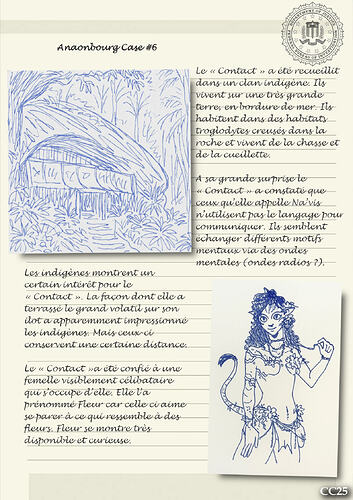 Anaonbourg Case #6
Le « Contact » a été recueillit
dans un clan indigène. Ils
vivent sur une très grande
terre, en bordure de mer. Ils
habitent dans des habitats
troglodytes creusés dans la
roche et vivent de la chasse et
de la cueillette.
A sa grande surprise le
« Contact » a constaté que
ceux qu'elle appelle Na'vis
n'utilisent pas le langage pour
communiquer. Ils semblent
échanger différents motifs
mentaux via des ondes
mentales (ondes radios ?).
Les indigènes montrent un
certain intérêt pour le
« Contact ». La façon dont elle a
terrassé le grand volatil sur son
ilot a apparemment impressionné
les indigènes. Mais ceux-ci
conservent une certaine distance.
Le « Contact » a été confié à une
femelle visiblement célibataire
qui s'occupe d'elle. Elle l'a
prénommé Fleur car celle ci aime
se parer à ce qui ressemble à des
fleurs. Fleur se montre très
disponible et curieuse.
CC25